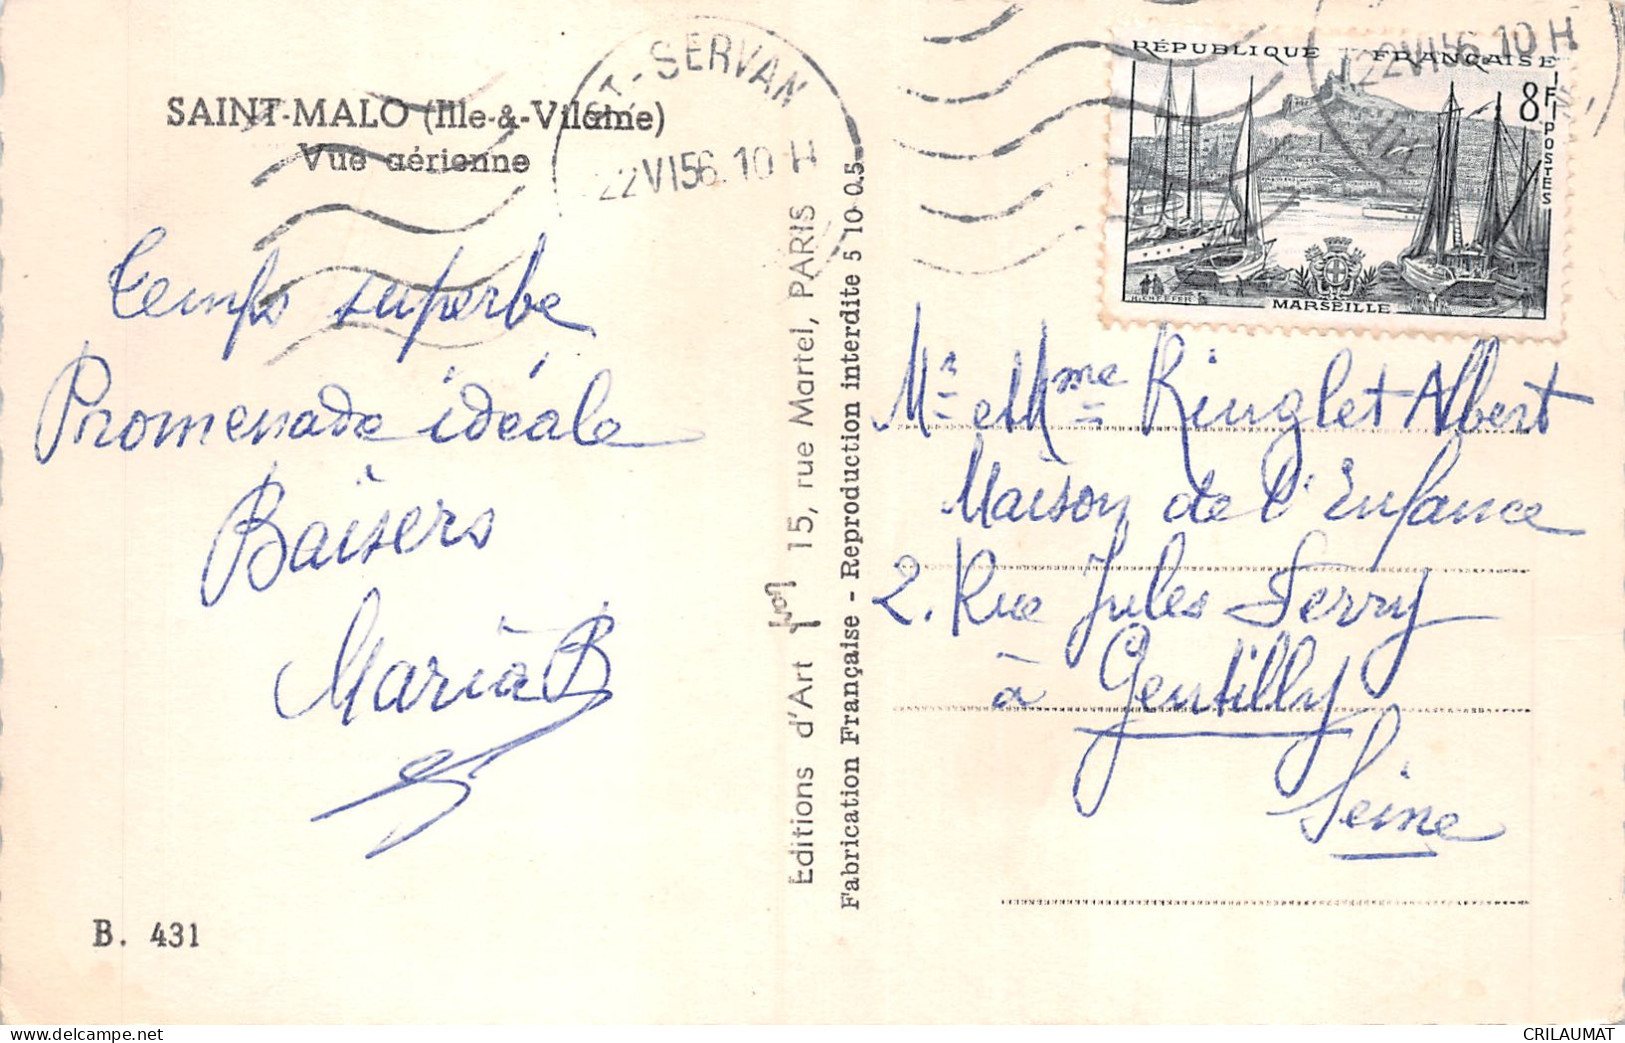 SAINT-MALO (Ille-&-Vilaine)
Vue aérienne
ST-SERVAN
22 VI 56. 10 H
Temps superbe
Promenade idéale
Baisers
Maria B
B. 431
Editions d'Art Yvon 15, rue Martel, PARIS
Fabrication Française - Reproduction interdite 5 10 05
22 VI 56. 10 H
RÉPUBLIQUE FRANÇAISE
8F
POSTES
MARSEILLE
Mr et Mme Ringlet Albert
Maison de l'Enfance
2. Rue Jules Ferry
à Gentilly
Seine
CRILAUMAT